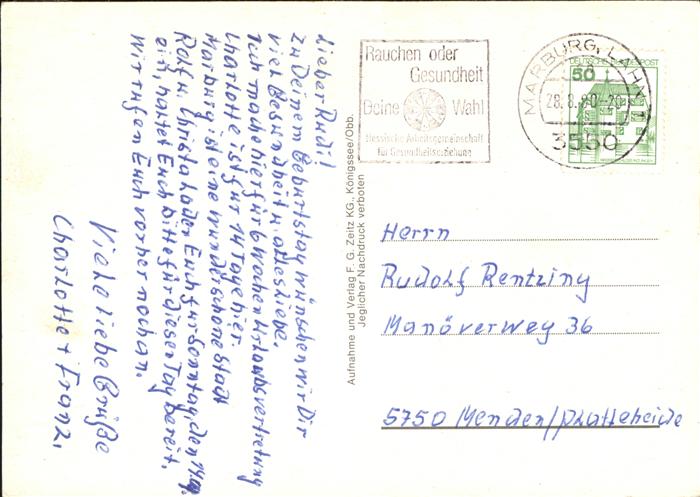 Lieber Rudi!
Zu Deinem Geburtstag wünschen wir Dir
viel Gesundheit u. alles Liebe.
Ich mache hier für 6 Wochen Urlaubsvertretung
Charlotte ist für 14 Tage hier.
Marburg ist eine wunderschöne Stadt
Rolf u. Christa laden Euch für Sonntag, den 14.9.
ein, haltet Euch bitte für diesen Tag bereit.
Wir rufen Euch vorher noch an.
Viele liebe Grüße
Charlotte + Franz.
Aufnahme und Verlag F. G. Zeitz KG., Königssee/Obb.
Jeglicher Nachdruck verboten
Rauchen oder
Gesundheit
Deine Wahl
Hessische Arbeitsgemeinschaft
für Gesundheitserziehung
MARBURG, LAHN 1
28.8.80-20
3550
DEUTSCHE BUNDESPOST
50
Herrn
Rudolf Rentzing
Manöverweg 36
5750 Menden/Platteheide